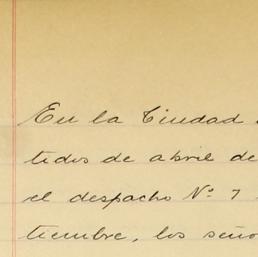 En la Ciudad
tidos de abril de
el despacho Nº 7
tiembre, los seño